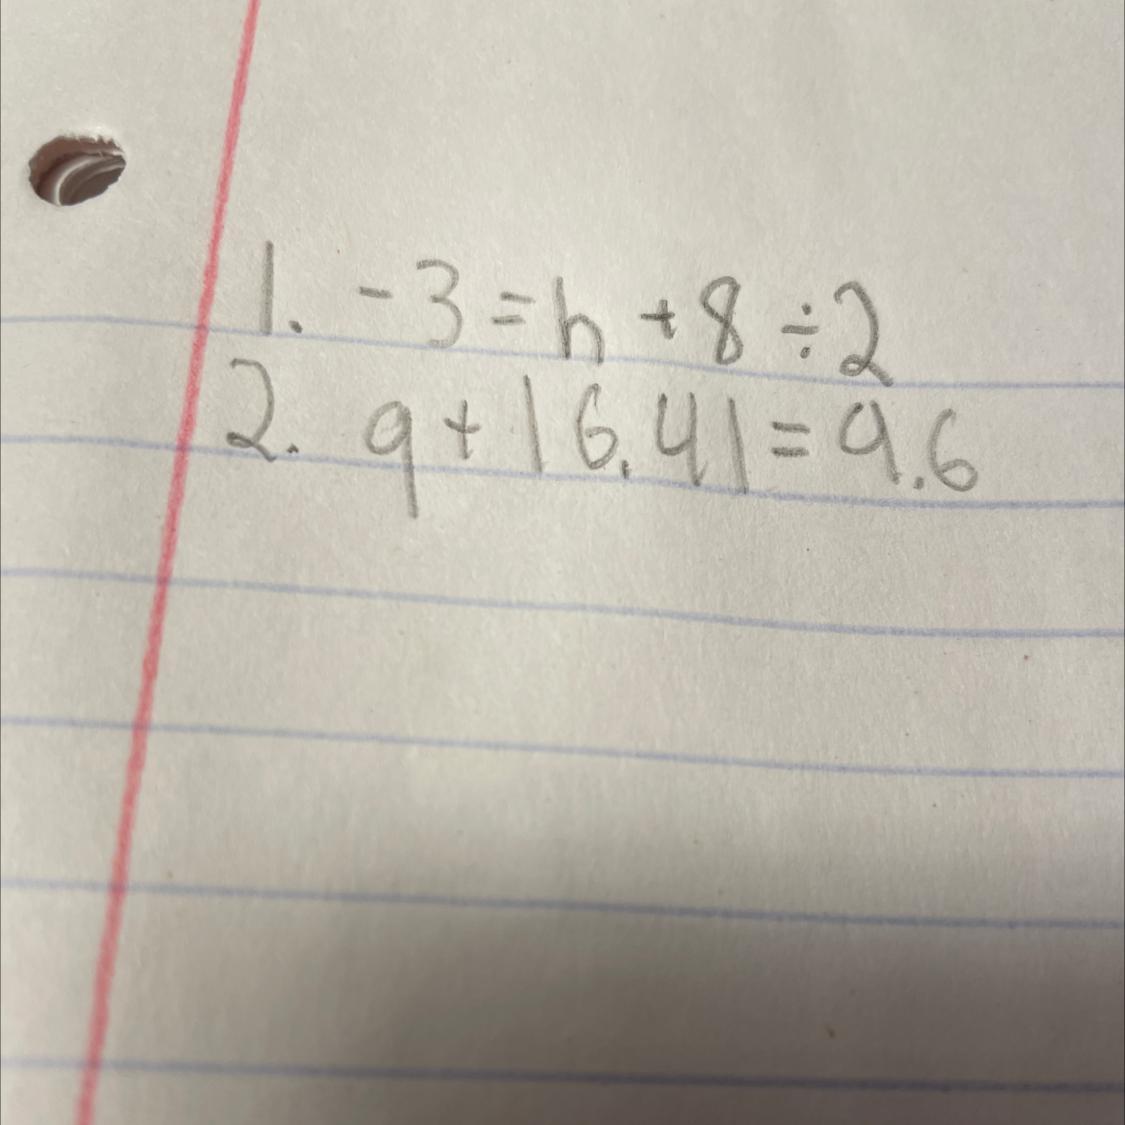 1. -3=h+8÷2
2. q+16.41=9.6